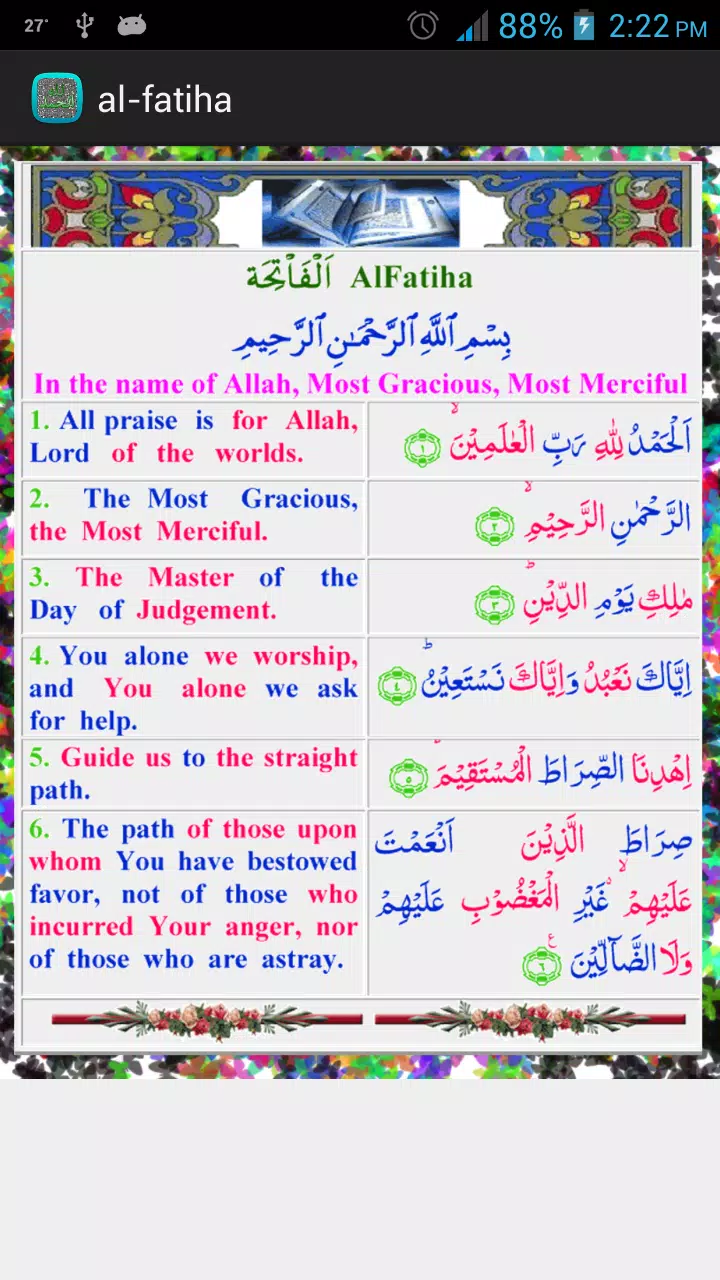 27°
88% 2:22 PM
al-fatiha
اَلْفَاتِحَة AlFatiha
بِسْمِ ٱللَّهِ ٱلرَّحْمَـٰنِ ٱلرَّحِيمِ
In the name of Allah, Most Gracious, Most Merciful
1. All praise is for Allah,
Lord of the worlds.
اَلْحَمْدُ لِلّٰهِ رَبِّ الْعٰلَمِيْنَۙ ١
2. The Most Gracious,
the Most Merciful.
الرَّحْمٰنِ الرَّحِيْمِۙ ٢
3. The Master of the
Day of Judgement.
مٰلِكِ يَوْمِ الدِّيْنِؕ ٣
4. You alone we worship,
and You alone we ask
for help.
اِيَّاكَ نَعْبُدُ وَاِيَّاكَ نَسْتَعِيْنُؕ ٤
5. Guide us to the straight
path.
اِهْدِنَا الصِّرَاطَ الْمُسْتَقِيْمَ ٥
6. The path of those upon
whom You have bestowed
favor, not of those who
incurred Your anger, nor
of those who are astray.
صِرَاطَ الَّذِيْنَ اَنْعَمْتَ
عَلَيْهِمْ ۙ غَيْرِ الْمَغْضُوْبِ عَلَيْهِمْ
وَلَا الضَّآلِّيْنَ ٦